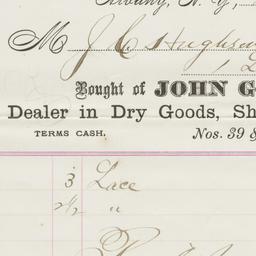 Albany, N. Y.,
M J. C. Hughson
Bought of JOHN G
Dealer in Dry Goods, Sh
TERMS CASH. Nos. 39 &
3 Lace
2 1/2 "